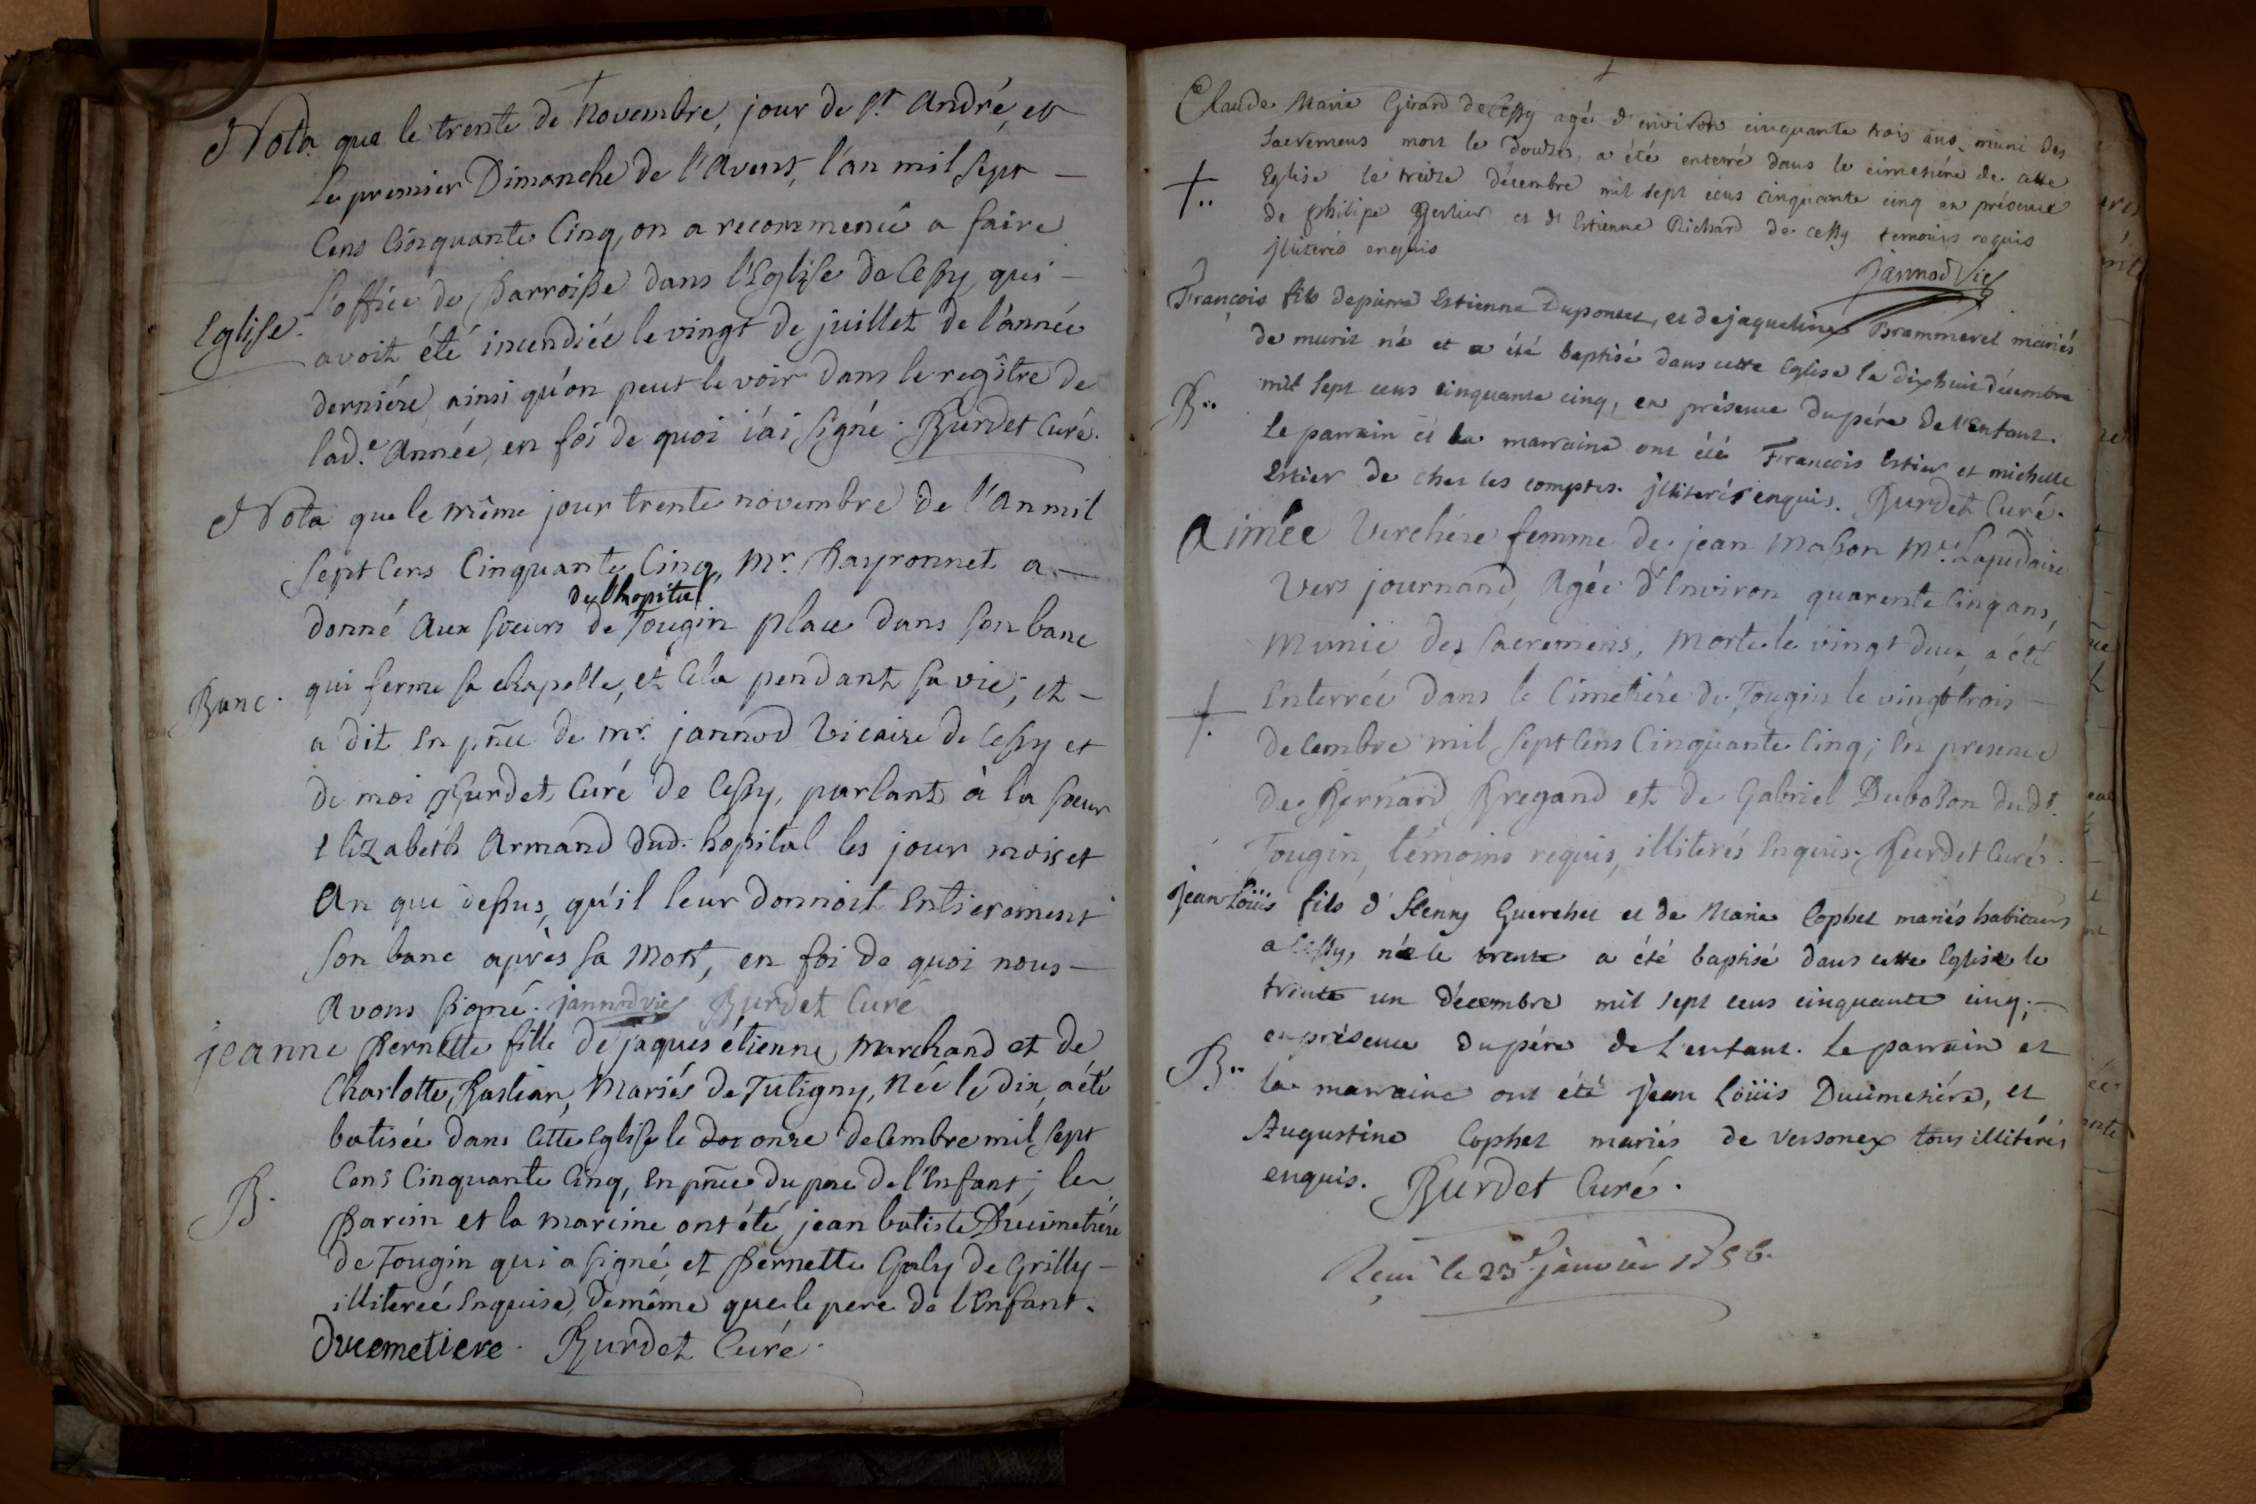 Nota que le trente de Novembre, jour de St. André, et
le premier Dimanche de l'Avent, l'an mil sept
Cens Cinquante Cinq, on a recommencé a faire
l'office de parroisse dans l'Eglise de Cessy qui
Eglise.
avoit été incendiée le vingt de juillet de l'année
derniére, ainsi qu'on peut le voir dans le regître de
lad.e Année, en foi de quoi j'ai signé. Burdet Curé.
Nota que le même jour trente novembre de l'An mil
Sept Cens Cinquante Cinq, Mr. Payronnet a
de l'hopital
donné Aux soeurs de Tougin place dans son banc
Banc.
qui ferme sa chapelle, et Cela pendant sa vie; et
a dit En pñce de mr. jannod Vicaire de Cessy et
de moi Burdet Curé de Cessy, parlant à la soeur
Elizabeth Armand dud. hopital les jour mois et
An que dessus, qu'il leur donnoit Entierement
son banc après sa Mort, en foi de quoi nous
Avons signé. jannod vic Burdet Curé
jeanne Pernette fille de jaques étienne Marchand et de
Charlotte Bastian, Mariés de Tutigny, Née le dix, a été
batisée dans Cette Eglise le onze decembre mil sept
B.
Cens Cinquante Cinq, En pñce du pere de l'Enfant; le
Parein et la mareine ont été jean batiste Ducimetiére
de Tougin qui a signé, et Pernette Galy de Grilly
illiterée Enquise, de même que le pere de l'Enfant.
Ducemetiere. Burdet Curé.
Claude Marie Girard de Cessy agé d'environ cinquante trois ans, muni des
Sacremens mort le douze, a été enterré dans le cimetiére de cette
Eglise le treize décembre mil sept cens cinquante cinq en présence
de philipe Berlier et d'Estienne Richard de cessy temoins requis
jlliterés enquis
jannod Vic
François fils de pierre Estienne Dupontet, et de jaqueline Brammerel mariés
de murit né et a été baptisé dans cette Eglise le dixhuit décembre
B..
mil sept cens cinquante cinq, en présence du pére de l'Enfant.
le parrain et la marraine ont été François Estier et michelle
Estier de chez les comptes. jlliterés enquis. Burdet Curé.
Aimée Verchére femme de jean Masson Me. Lapidaire
Vers journand, Agée d'Environ quarente Cinq ans,
Munie des sacremens, Morte le vingt deux, a été
Enterrée dans le Cimetiére de Tougin le vingt trois
decembre mil sept Cens Cinquante Cinq; En presence
de Bernard Bregand et de Gabriel Duboson dudt.
Tougin, témoins requis, illiterés Enquis. Burdet Curé.
jean Loüis fils d'Henry Guerchet et de Marie Cophet mariés habitans
a Cessy, né le trente a été baptisé dans cette Eglise le
trente un décembre mil sept cens cinquante cinq;
en présence du pére de l'enfant. Le parrain et
B..
la marraine ont été jean Loüis Ducimetiére, et
Augustine Cophet mariés de Versonex tous illitérés
enquis. Burdet Curé.
Reçu le 23e janvier 1756.